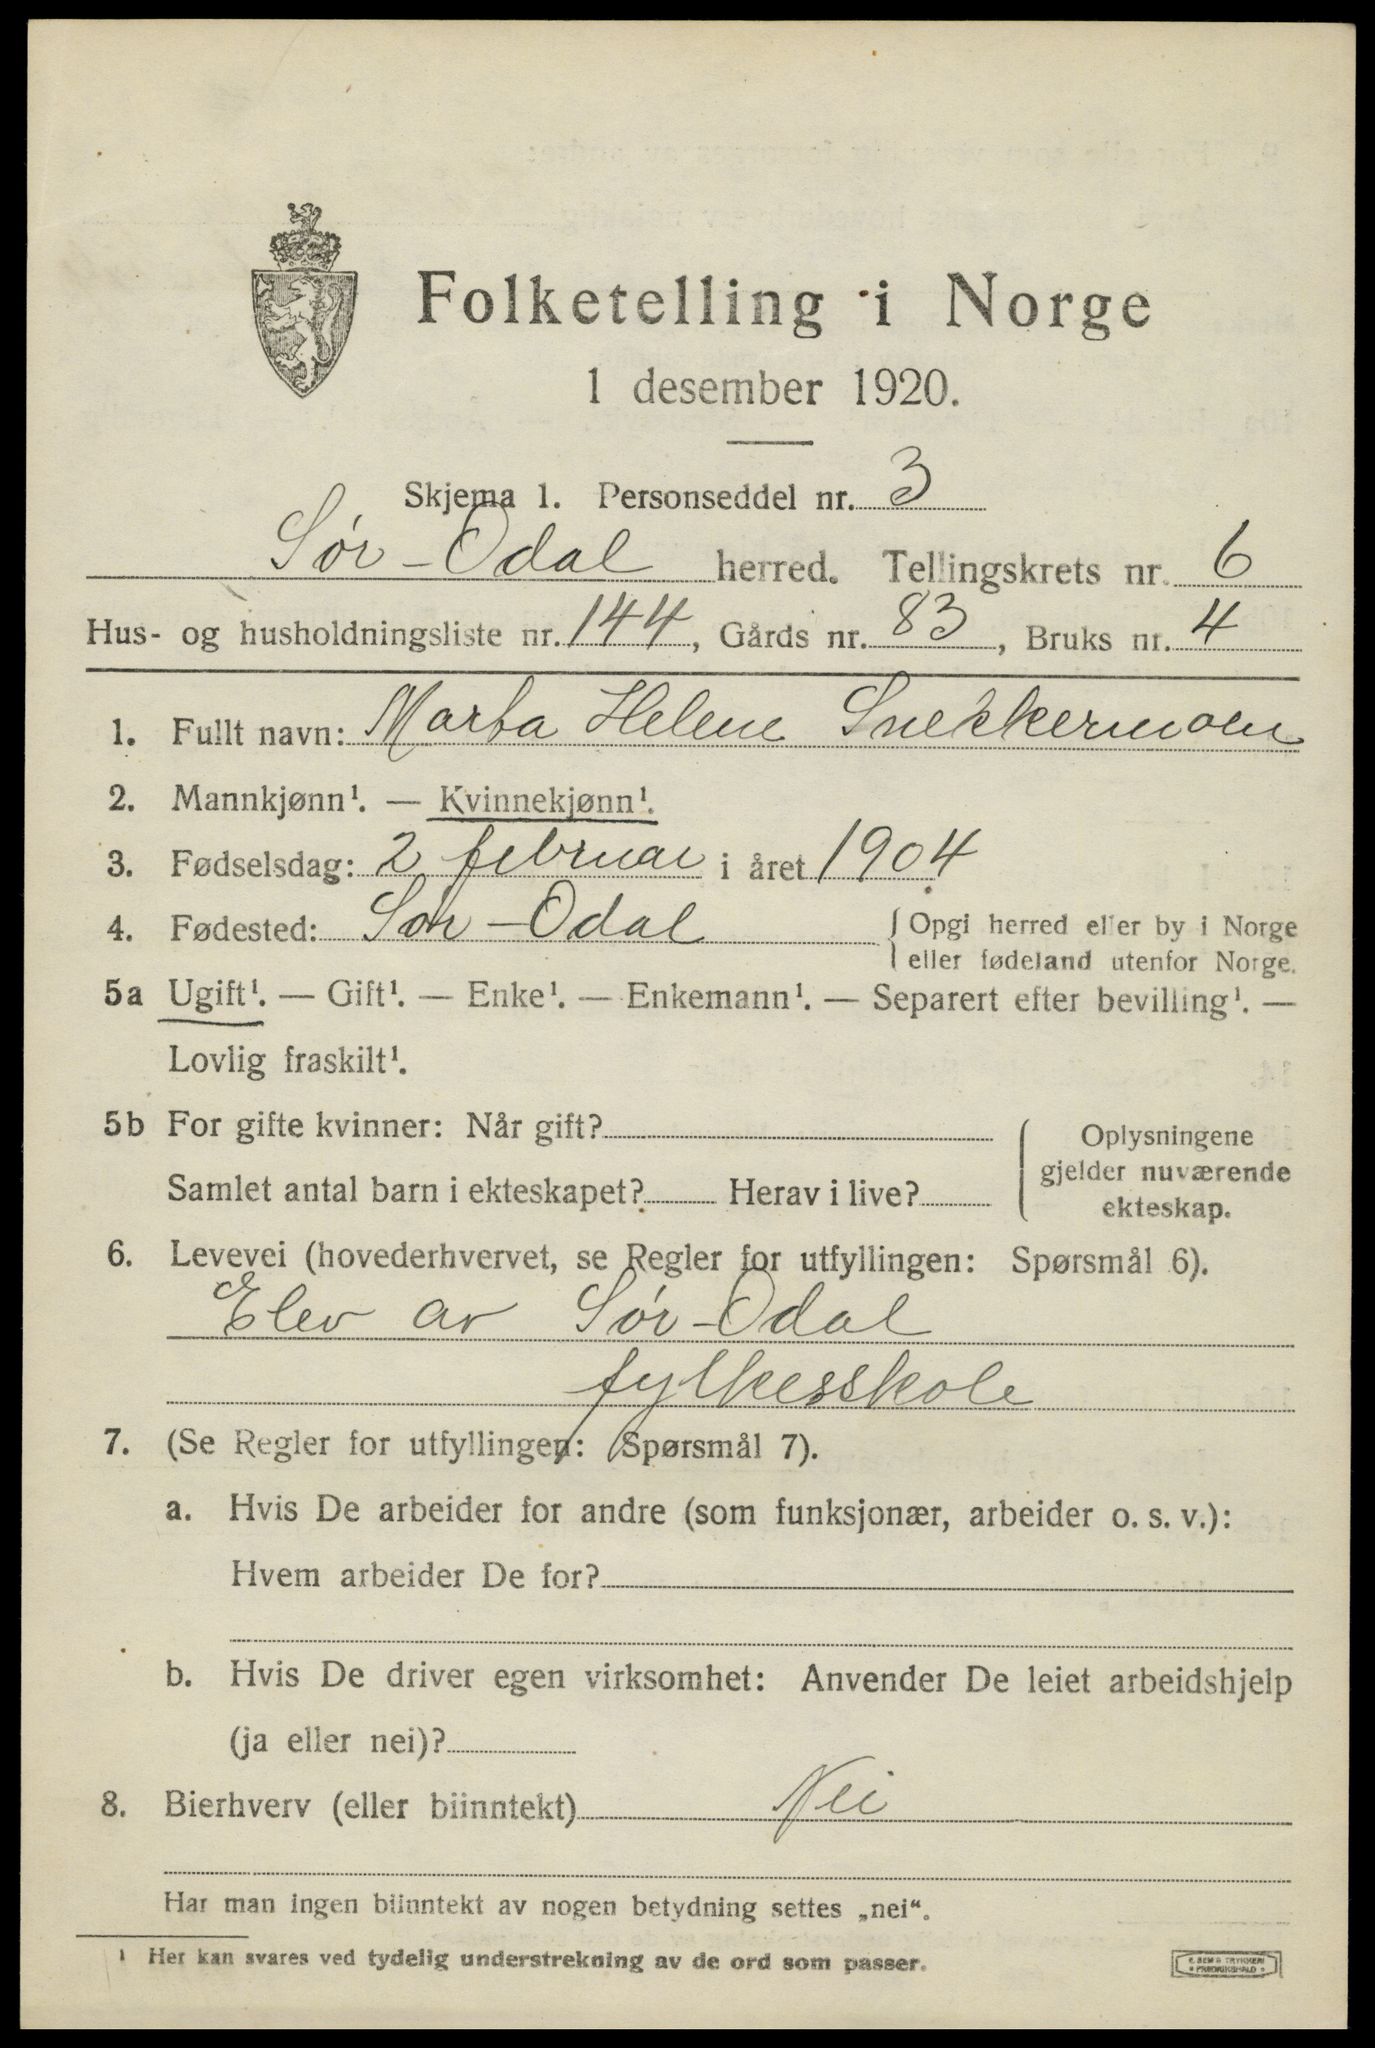 Folketelling i Norge
1 desember 1920.
Skjema 1. Personseddel nr. 3
Sør-Odal herred. Tellingskrets nr. 6
Hus- og husholdningsliste nr. 144, Gårds nr. 83, Bruks nr. 4
1. Fullt navn: Marta Helene Snekkermoen
2. Mannkjønn¹. — Kvinnekjønn¹.
3. Fødselsdag: 2 februar i året 1904
4. Fødested: Sør-Odal { Opgi herred eller by i Norge
eller fødeland utenfor Norge.
5a Ugift¹. — Gift¹. — Enke¹. — Enkemann¹. — Separert efter bevilling¹. —
Lovlig fraskilt¹.
5b For gifte kvinner: Når gift?
Samlet antal barn i ekteskapet? Herav i live?
{ Oplysningene
gjelder nuværende
ekteskap.
6. Levevei (hovederhvervet, se Regler for utfyllingen: Spørsmål 6).
Elev av Sør-Odal
fylkesskole
7. (Se Regler for utfyllingen: Spørsmål 7).
a. Hvis De arbeider for andre (som funksjonær, arbeider o. s. v.):
Hvem arbeider De for?
b. Hvis De driver egen virksomhet: Anvender De leiet arbeidshjelp
(ja eller nei)?
8. Bierhverv (eller biinntekt) Nei
Har man ingen biinntekt av nogen betydning settes „nei“.
¹ Her kan svares ved tydelig understrekning av de ord som passer.